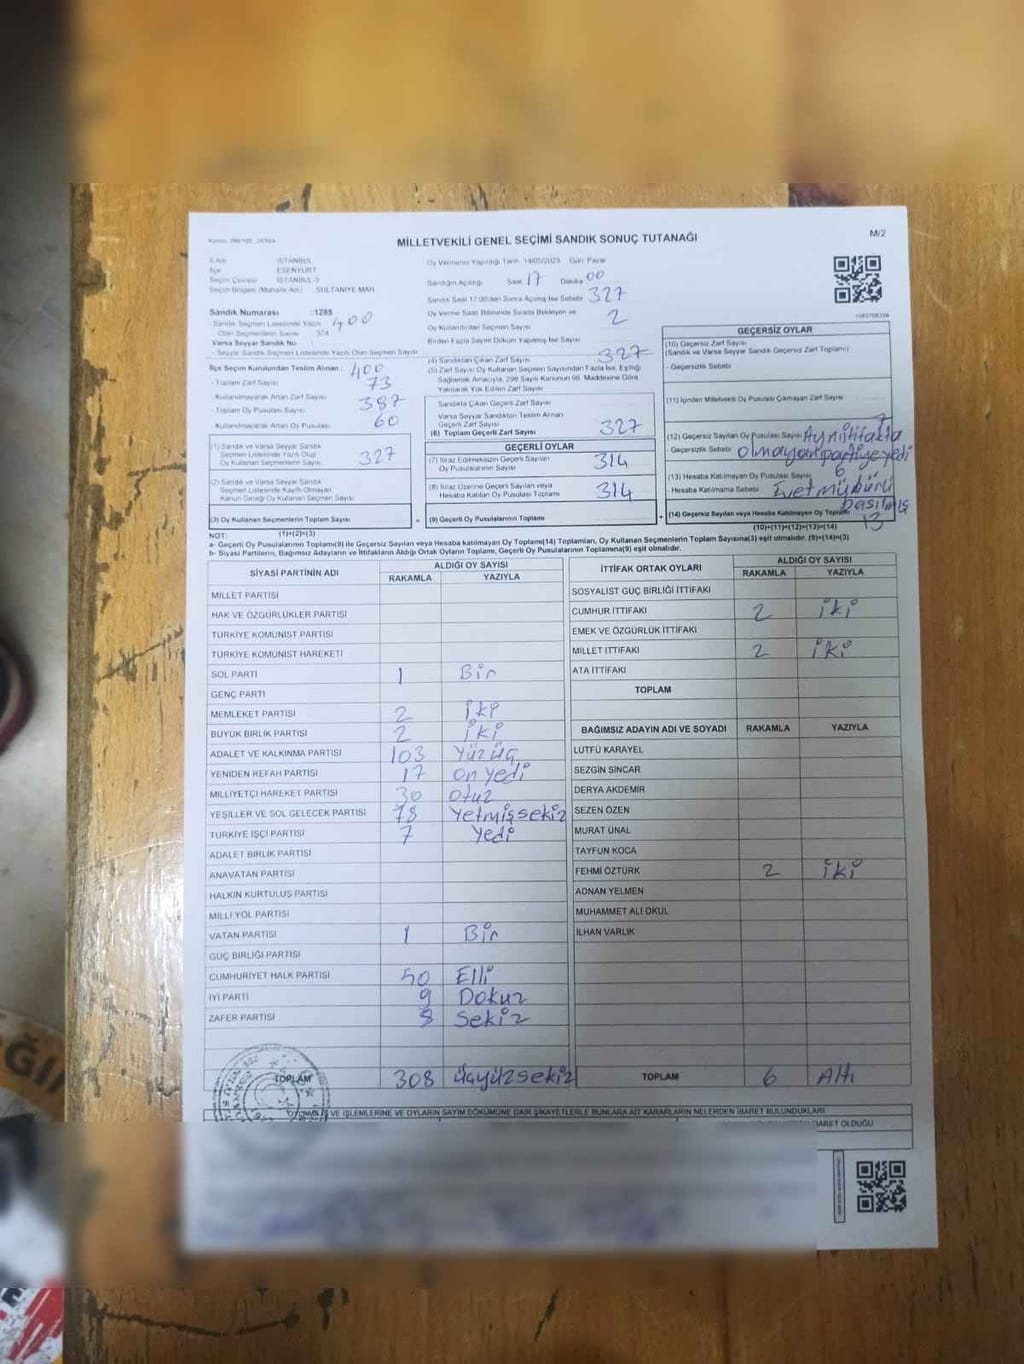 MİLLETVEKİLİ GENEL SEÇİMİ SANDIK SONUÇ TUTANAĞI
M/2
İSTANBUL
İlçe ESENYURT
Seçim Çevresi İSTANBUL-3
Seçim Bölgesi (Mahalle Adı) SULTANİYE MAH.
Oy Vermenin Yapıldığı Tarih 14/05/2023 Gün: Pazar
Sandığın Açıldığı Saat 17 Dakika 00
Sandık Saat 17.00'den Sonra Açılmış İse Sebebi 327
Oy Verme Saati Bitiminde Sırada Bekleyen ve 2
Oy Kullandırılan Seçmen Sayısı
Birden Fazla Sayım Döküm Yapılmış İse Sayısı
Sandık Numarası : 1285
- Sandık Seçmen Listesinde Yazılı 400
Olan Seçmenlerin Sayısı
Varsa Seyyar Sandık No
- Seyyar Sandık Seçmen Listesinde Yazılı Olan Seçmen Sayısı
İlçe Seçim Kurulundan Teslim Alınan : 400
- Toplam Zarf Sayısı 73
- Kullanılmayarak Artan Zarf Sayısı 387
- Toplam Oy Pusulası Sayısı
- Kullanılmayarak Artan Oy Pusulası 60
(1) Sandık ve Varsa Seyyar Sandık
Seçmen Listesinde Yazılı Olup 327
Oy Kullanan Seçmenlerin Sayısı
(2) Sandık ve Varsa Seyyar Sandık
Seçmen Listesinde Kayıtlı Olmayan
Kanun Gereği Oy Kullanan Seçmen Sayısı
(3) Oy Kullanan Seçmenlerin Toplam Sayısı
(1)+(2)=(3)
(4) Sandıktan Çıkan Zarf Sayısı 327
(5) Zarf Sayısı Oy Kullanan Seçmen Sayısından Fazla İse, Eşitliği
Sağlamak Amacıyla, 298 Sayılı Kanunun 98. Maddesine Göre
Yakılarak Yok Edilen Zarf Sayısı
Sandıkta Çıkan Geçerli Zarf Sayısı
Varsa Seyyar Sandıktan Teslim Alınan
Geçerli Zarf Sayısı
(6) Toplam Geçerli Zarf Sayısı 327
GEÇERLİ OYLAR
(7) İtiraz Edilmeksizin Geçerli Sayılan 314
Oy Pusulasının Sayısı
(8) İtiraz Üzerine Geçerli Sayılan veya 314
Hesaba Katılan Oy Pusulası Toplamı
(9) Geçerli Oy Pusulalarının Toplamı
GEÇERSİZ OYLAR
(10) Geçersiz Zarf Sayısı
(Sandık ve Varsa Seyyar Sandık Geçersiz Zarf Toplamı)
- Geçersizlik Sebebi
(11) İçinden Milletvekili Oy Pusulası Çıkmayan Zarf Sayısı
7
(12) Geçersiz Sayılan Oy Pusulası Sayısı Aynı ittifakta
- Geçersizlik Sebebi olmayan partiye yedi
(13) Hesaba Katılmayan Oy Pusulası Sayısı 6
- Hesaba Katılmama Sebebi Evet mührü
basılmış
(14) Geçersiz Sayılan veya Hesaba Katılmayan Oy Toplamı 13
(10)+(11)+(12)+(13)=(14)
NOT:
a- Geçerli Oy Pusulalarının Toplamı(9) ile Geçersiz Sayılan veya Hesaba katılmayan Oy Toplamı(14) Toplamları, Oy Kullanan Seçmenlerin Toplam Sayısına(3) eşit olmalıdır. (9)+(14)=(3)
b- Siyasi Partilerin, Bağımsız Adayların ve İttifakların Aldığı Ortak Oyların Toplamı, Geçerli Oy Pusulalarının Toplamına(9) eşit olmalıdır.
SİYASİ PARTİNİN ADI
ALDIĞI OY SAYISI
RAKAMLA YAZIYLA
MİLLET PARTİSİ
HAK VE ÖZGÜRLÜKLER PARTİSİ
TÜRKİYE KOMÜNİST PARTİSİ
TÜRKİYE KOMÜNİST HAREKETİ
SOL PARTİ 1 Bir
GENÇ PARTİ
MEMLEKET PARTİSİ 2 iki
BÜYÜK BİRLİK PARTİSİ 2 iki
ADALET VE KALKINMA PARTİSİ 103 Yüz üç
YENİDEN REFAH PARTİSİ 17 on yedi
MİLLİYETÇİ HAREKET PARTİSİ 30 otuz
YEŞİLLER VE SOL GELECEK PARTİSİ 78 Yetmişsekiz
TÜRKİYE İŞÇİ PARTİSİ 7 Yedi
ADALET BİRLİK PARTİSİ
ANAVATAN PARTİSİ
HALKIN KURTULUŞ PARTİSİ
MİLLİ YOL PARTİSİ
VATAN PARTİSİ 1 Bir
GÜÇ BİRLİĞİ PARTİSİ
CUMHURİYET HALK PARTİSİ 50 Elli
İYİ PARTİ 9 Dokuz
ZAFER PARTİSİ 8 Sekiz
TOPLAM 308 üçyüzsekiz
İTTİFAK ORTAK OYLARI
ALDIĞI OY SAYISI
RAKAMLA YAZIYLA
SOSYALİST GÜÇ BİRLİĞİ İTTİFAKI
CUMHUR İTTİFAKI 2 iki
EMEK VE ÖZGÜRLÜK İTTİFAKI
MİLLET İTTİFAKI 2 iki
ATA İTTİFAKI
TOPLAM
BAĞIMSIZ ADAYIN ADI VE SOYADI RAKAMLA YAZIYLA
LÜTFÜ KARAYEL
SEZGİN SİNCAR
DERYA AKDEMİR
SEZEN ÖZEN
MURAT ÜNAL
TAYFUN KOCA
FEHMİ ÖZTÜRK 2 iki
ADNAN YELMEN
MUHAMMET ALİ OKUL
İLHAN VARLIK
TOPLAM 6 Altı
VE İŞLEMLERİNE VE OYLARIN SAYIM DÖKÜMÜNE DAİR ŞİKAYETLERLE BUNLARA AİT KARARLARIN NELERDEN İBARET BULUNDUKLARI
İBARET OLDUĞU